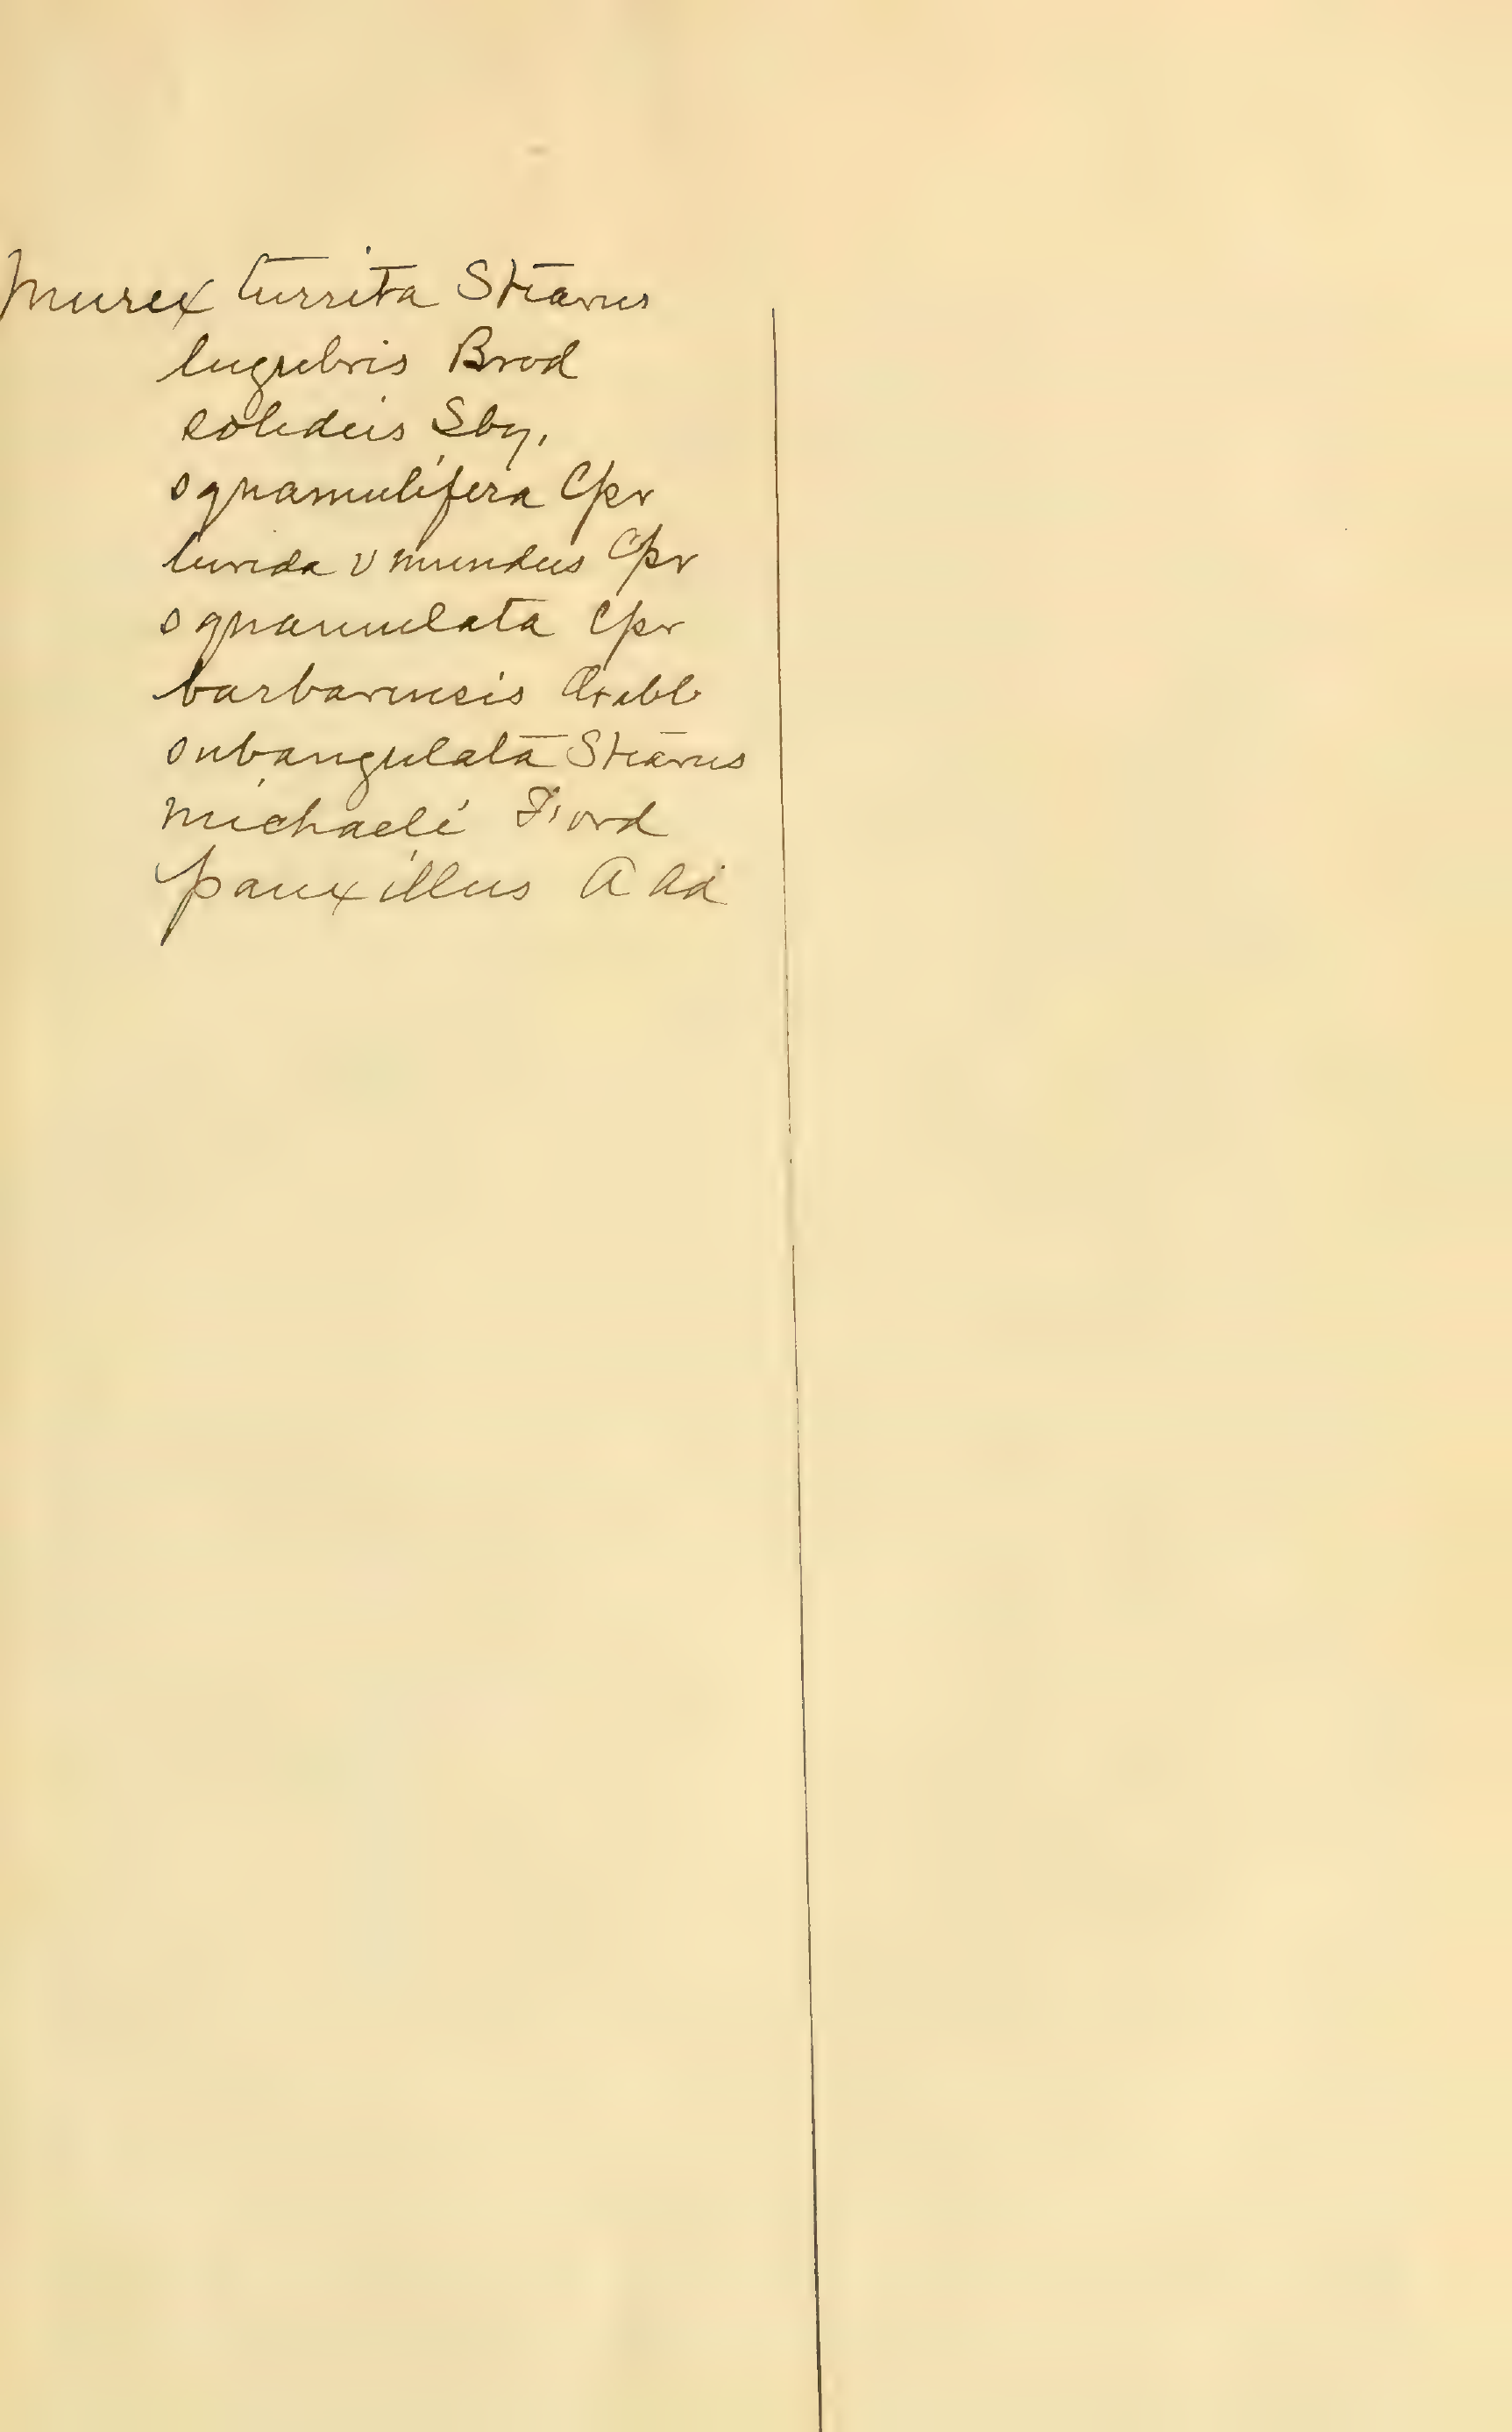 Murex turrita Stearns
lugubris Brod
solidus Sby.
squamulifera Cpr
lurida v mundus Cpr
squamulata Cpr
barbarensis Gabb
subangulata Stearns
michaeli Ford
pauxillus A Ad